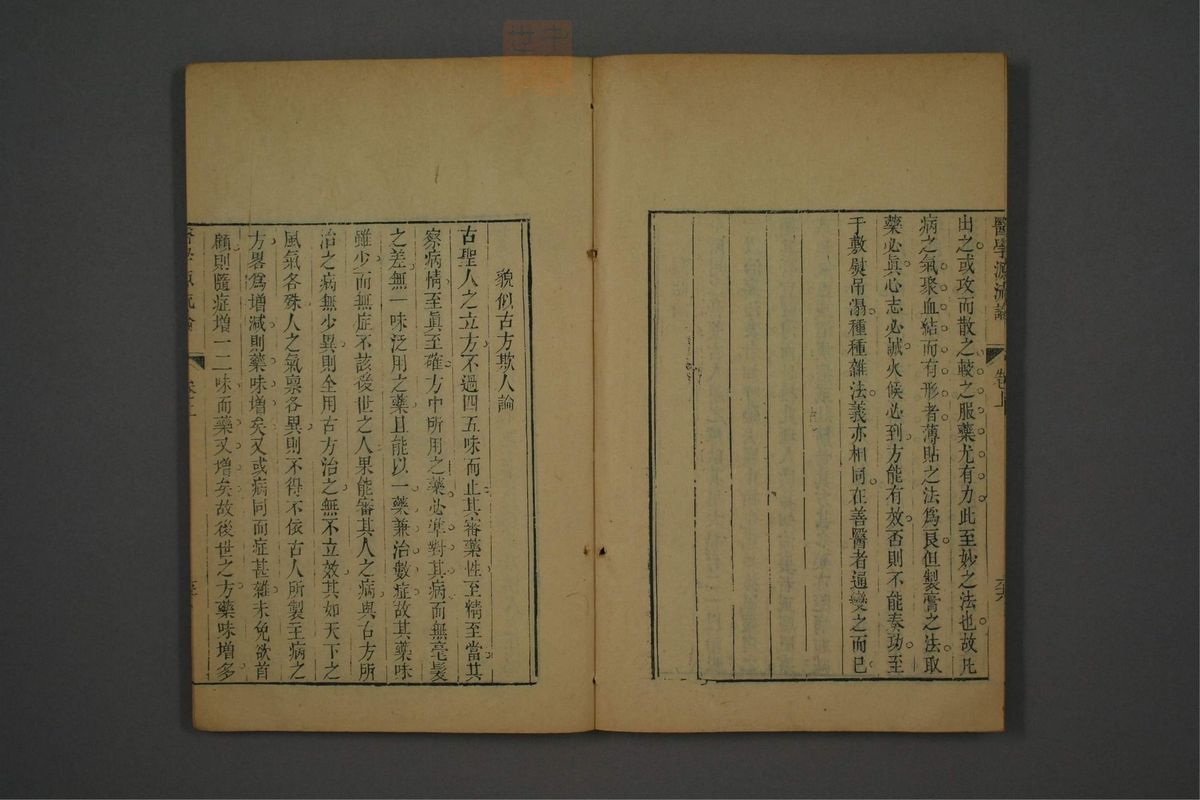 醫學源流論
卷上
出之或攻而散之較之服藥尤有力此至妙之法也故凡
病之氣聚血結而有形者薄貼之法爲良但製膏之法取
藥必眞心志必誠火候必到方能有效否則不能奏功至
于敷熨吊溻種種雜法義亦相同在善醫者通變之而已
貌似古方欺人論
古聖人之立方不過四五味而止其審藥性至精至當其
察病情至眞至確方中所用之藥必準對其病而無毫髮
之差無一味泛用之藥且能以一藥兼治數症故其藥味
雖少而無症不該後世之人果能審其人之病與古方所
治之病無少異則全用古方治之無不立效其如天下之
風氣各殊人之氣禀各異則不得不依古人所製主病之
方畧爲增減則藥味增矣又或病同而症甚雜未免欲首
顧則隨症增一二味而藥又增矣故後世之方藥味增多